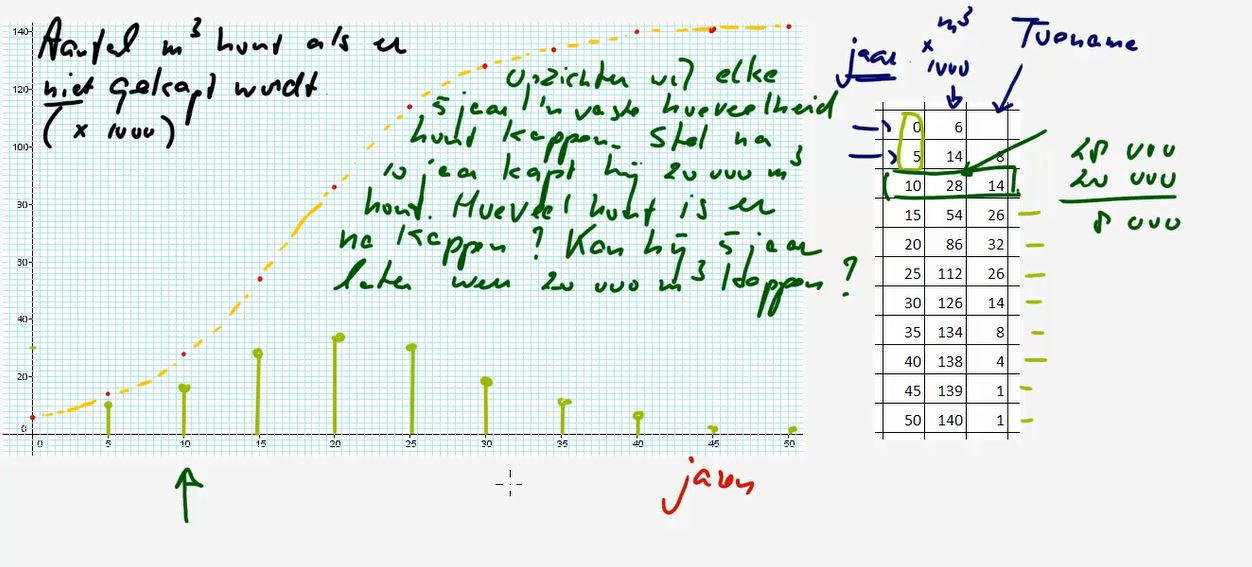 Aantal m³ hout als er
niet gekapt wordt
(x 1000)
Opzichter wil elke
5 jaar 'n vaste hoeveelheid
hout kappen. Stel na
10 jaar kapt hij 20 000 m³
hout. Hoeveel hout is er
na kappen? Kan hij 5 jaar
later weer 20 000 m³ kappen?
140
120
100
80
60
40
20
0
0 5 10 15 20 25 30 35 40 45 50
jaren
jaar x m³ 1000 Toename
0 6
5 14 8
10 28 14
15 54 26
20 86 32
25 112 26
30 126 14
35 134 8
40 138 4
45 139 1
50 140 1
28 000
20 000
8 000